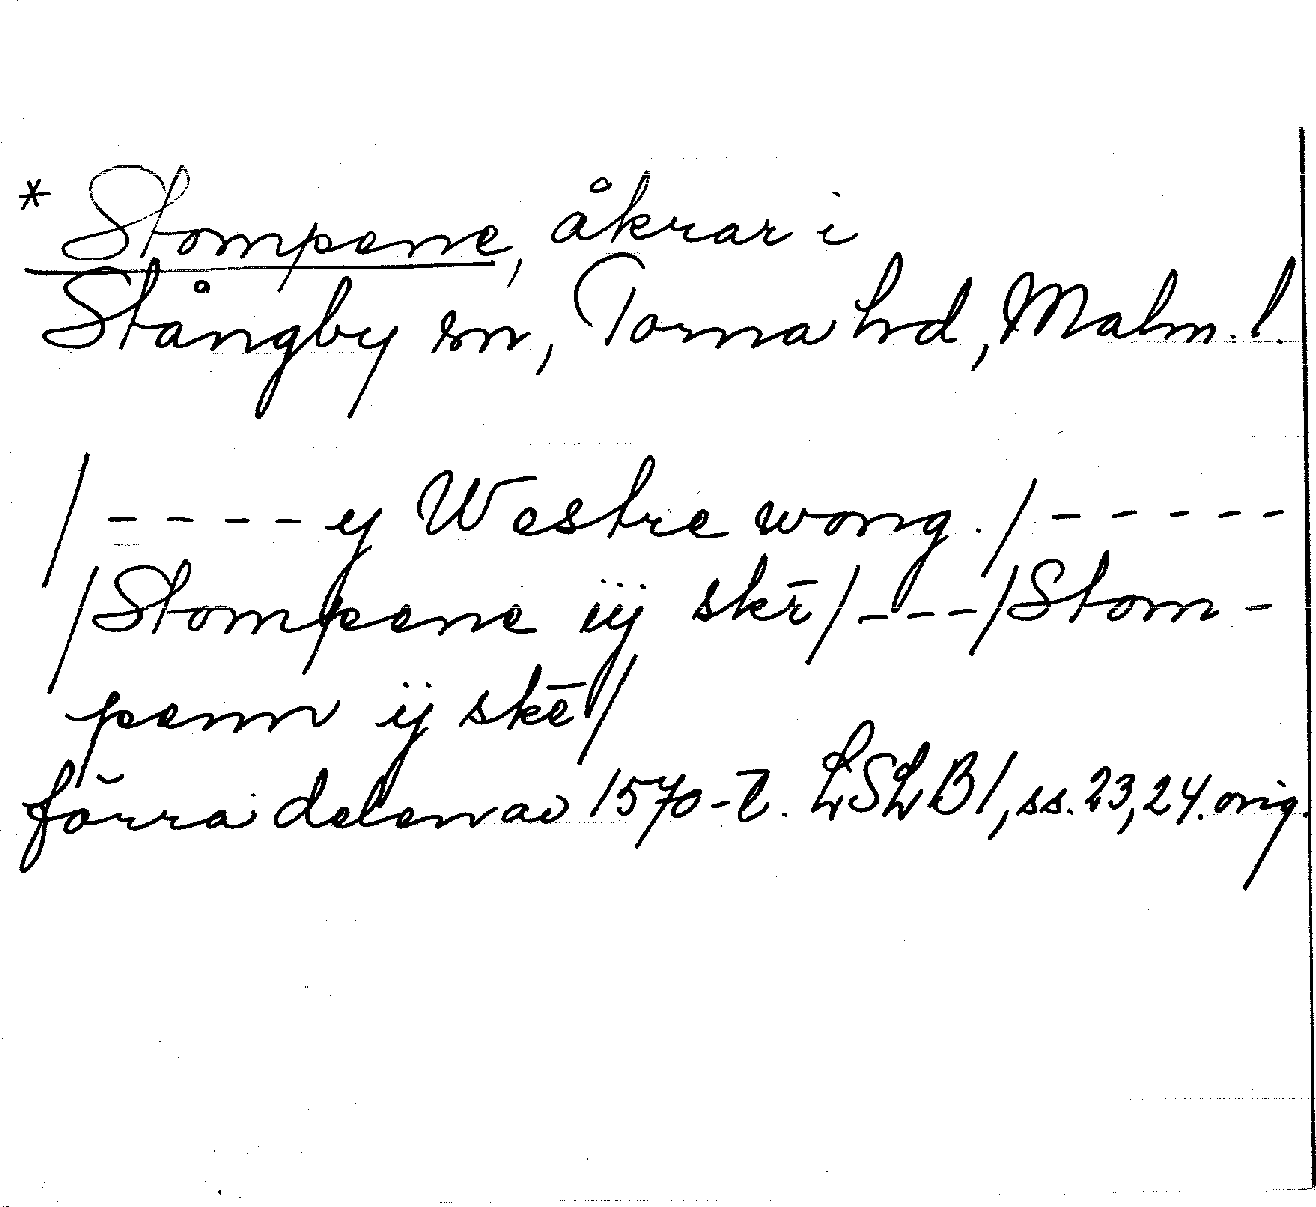 * Stompene, åkrar i
Stångby sn, Torna hd, Malm. l.
/ - - - - ij Westre wong. / - - - - -
/ Stompene iij skr̄ / - - - / Stom -
penn ij skē /
förra delen av 1570-t. LSLB 1, ss. 23, 24. orig.